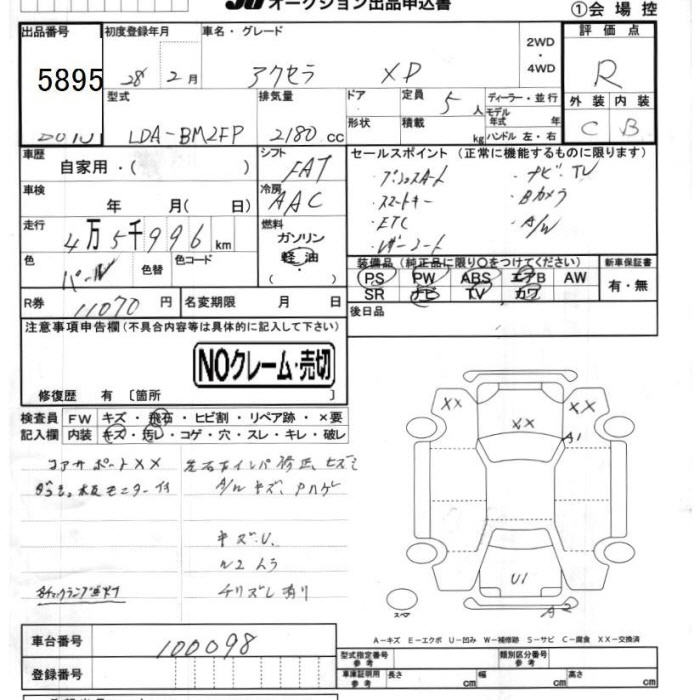 オークション出品申込書
①会場控
出品番号 初度登録年月 車名・グレード 2WD・4WD 評価点
5895 28年2月 アクセラ XD R
型式 排気量 ドア 定員 5人 ディーラー・並行 外装 内装
LDA-BM2FP 2180cc 形状 積載 kg モデル年式 年 ハンドル 左・右 C B
車歴 自家用・( ) シフト FAT セールスポイント (正常に機能するものに限ります)
・プッシュスタート ・ナビ・TV
車検 年 月(日) 冷房 AAC ・スマートキー ・Bカメラ
・ETC ・A/W
走行 4万5千996km 燃料 ガソリン 軽油 ( ) ・レザーシート
色 パール 色替 色コード
装備品(純正品に限り○をつけてください) 新車保証書
PS PW ABS エアB AW 有・無
SR ナビ TV カワ
R券 11070円 名変期限 月 日 後日品
注意事項申告欄(不具合内容等は具体的に記入して下さい)
NOクレーム・売切
修復歴 有 〔箇所 〕
検査員記入欄 FW キズ・飛石・ヒビ割・リペア跡・×要
内装 キズ・汚レ・コゲ・穴・スレ・キレ・破レ
コアサポートXX
A/W キズ、Pハゲ
キズ・U
チリズレ有り
XX XX
XX
A1
U1
A2
スペア
A－キズ E－エクボ U－凹み W－補修跡 S－サビ C－腐食 XX－交換済
車台番号 100098
型式指定番号 参考 類別区分番号 参考
登録番号 車庫証明用 参考 長さ cm 幅 cm 高さ cm